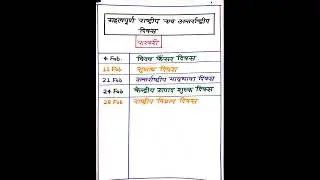 महत्वपूर्ण राष्ट्रीय एवं अन्तर्राष्ट्रीय
दिवस
फरवरी
4 Feb. विश्व कैंसर दिवस
13 Feb
21 Feb अन्तर्राष्ट्रीय मातृभाषा दिवस
24 Feb केन्द्रीय उत्पाद शुल्क दिवस
28 Feb राष्ट्रीय विज्ञान दिवस